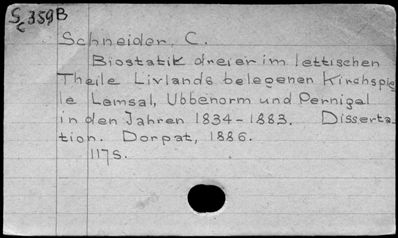 Sc 359B
Schneider, C.
Biostatik dreier im lettischen
Theile Livlands belegenen Kirchspie
le Lemsal, Ubbenorm und Pernigel
in den Jahren 1834-1883. Disserta-
tion. Dorpat, 1886.
117 S.